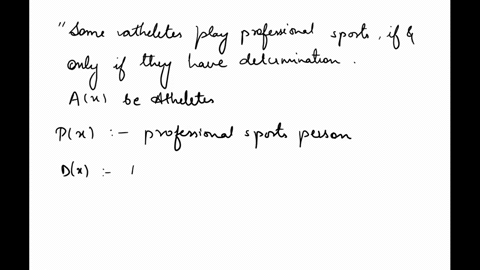 "Some atheletes play professional sports, if &
only if they have determination.
A(x) be Atheletes
P(x) :- professional sports person
D(x) :-